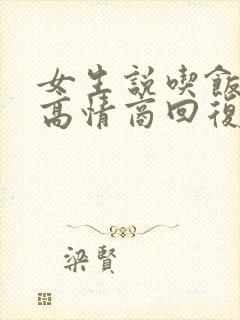 女生説喫飯
高情商回復
梁賢